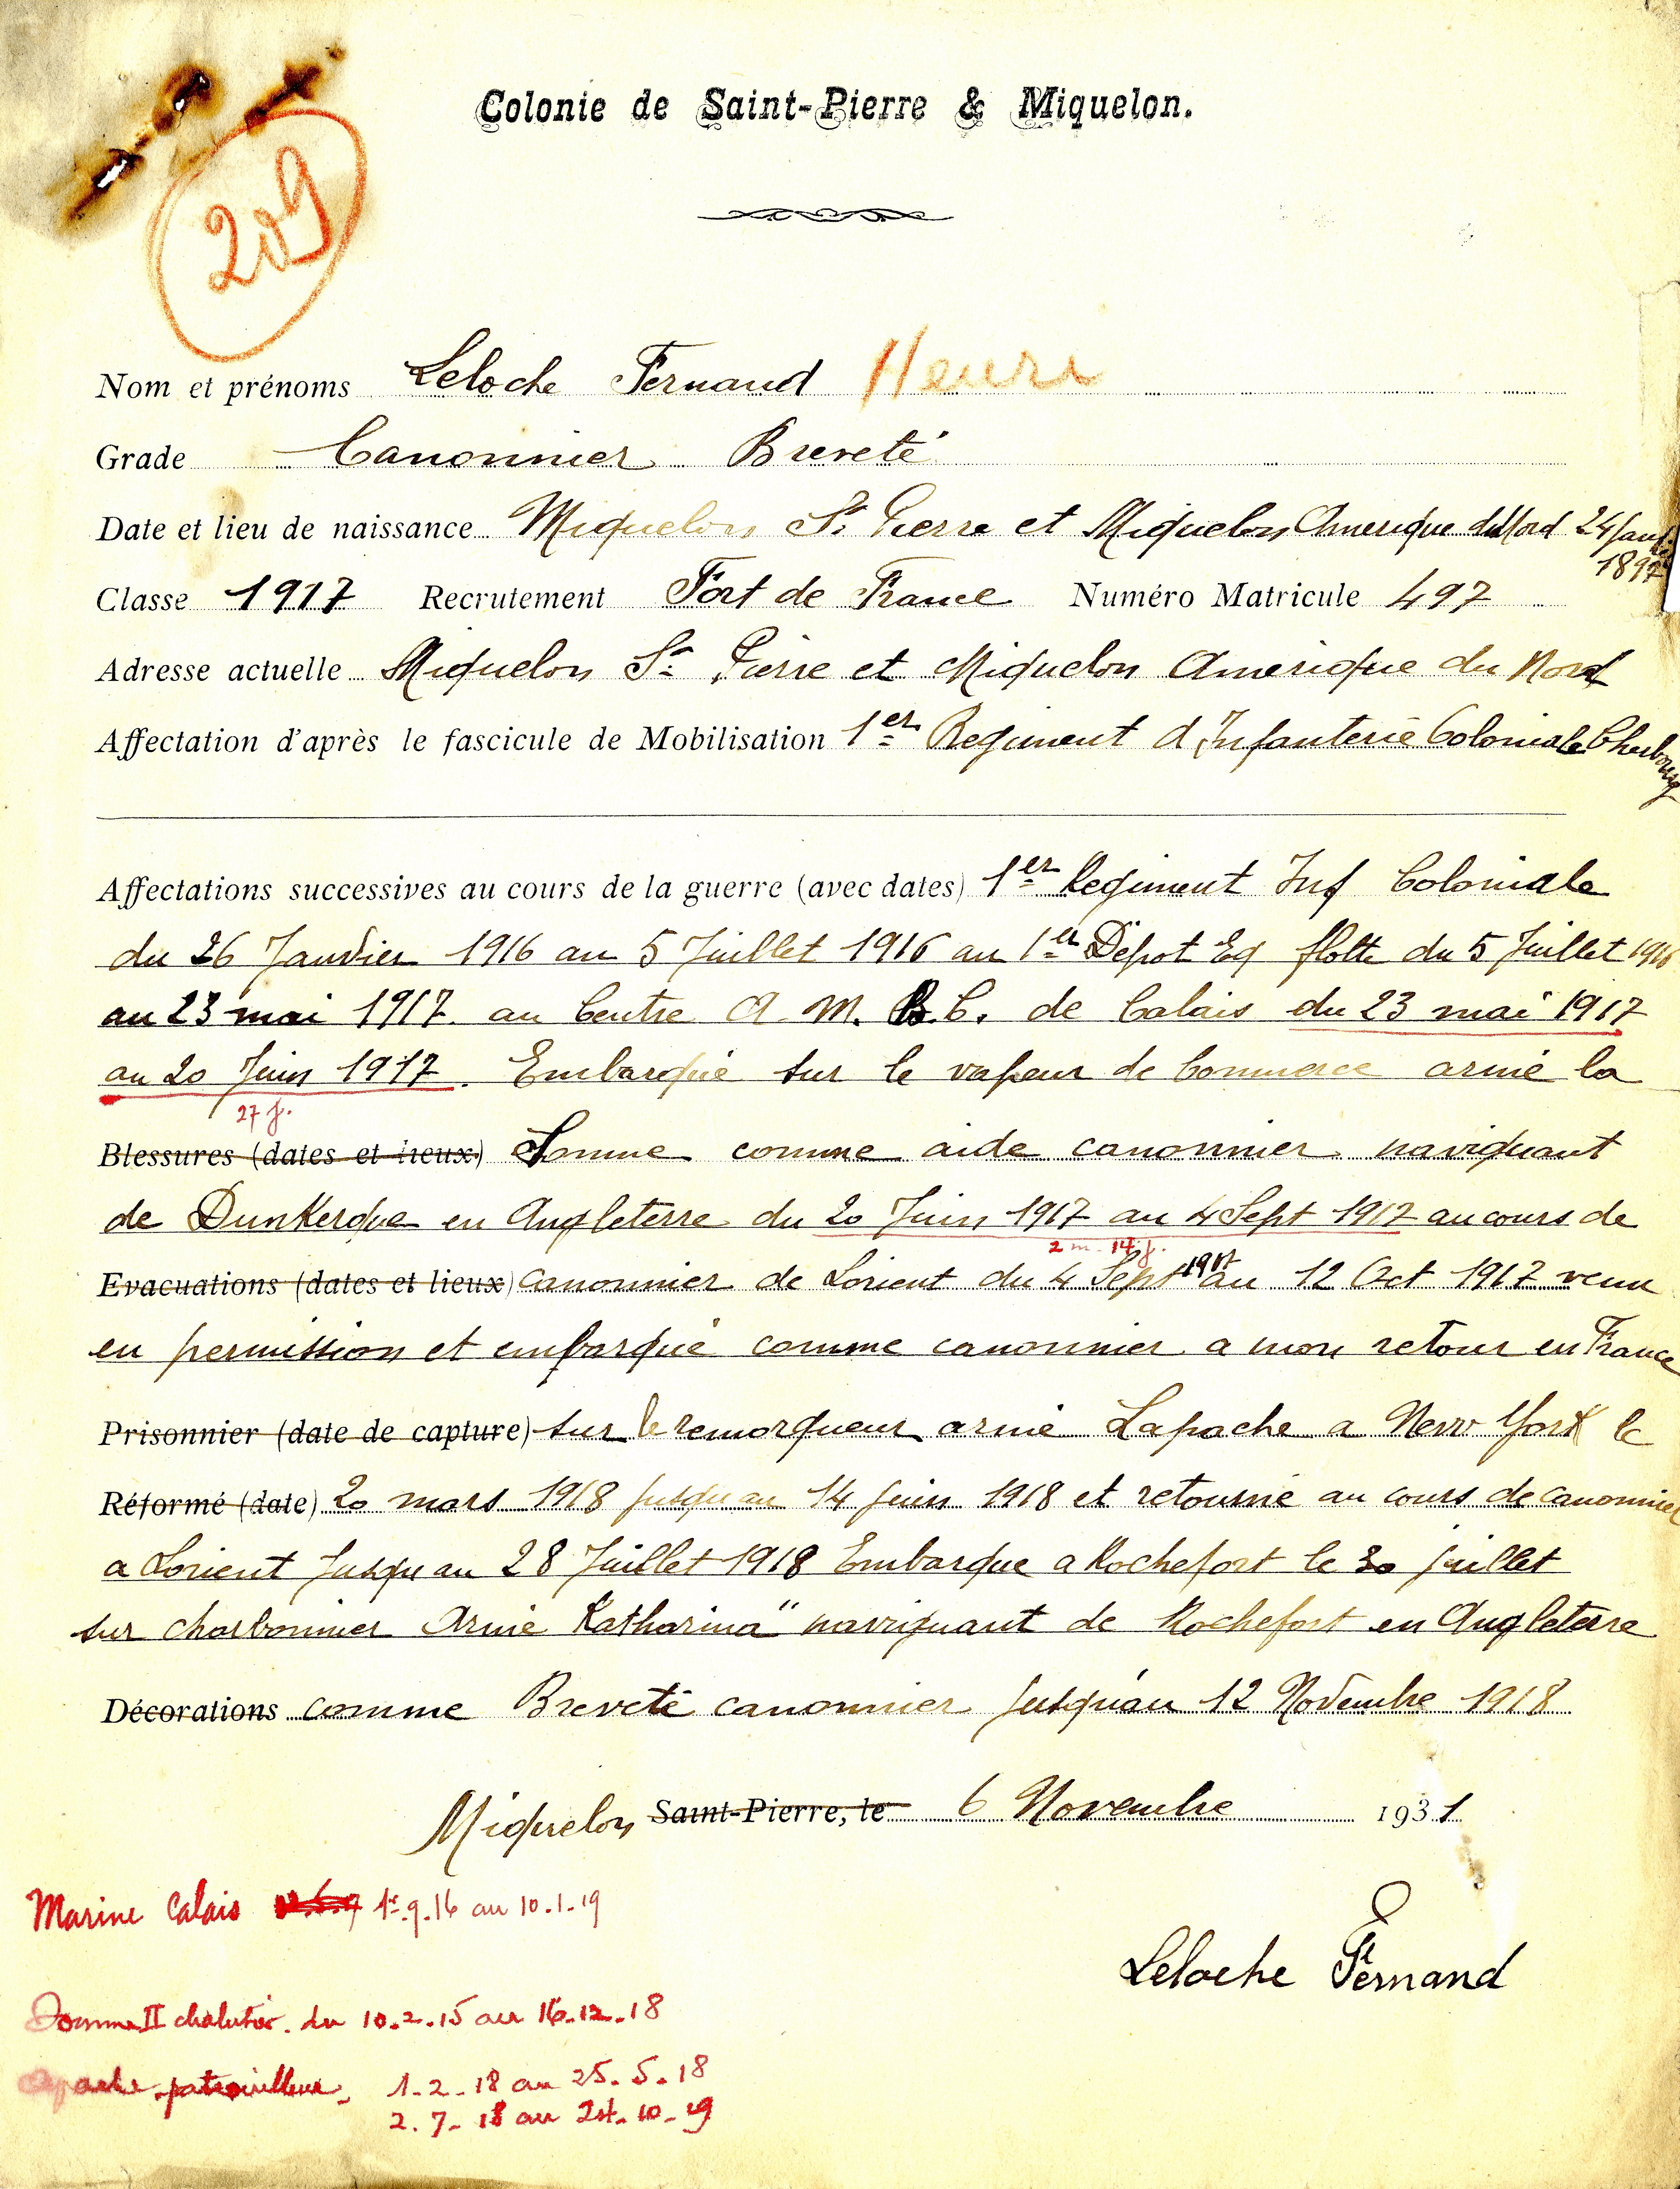 Colonie de Saint-Pierre & Miquelon.
209
Nom et prénoms Leloche Fernand Henri
Grade Canonnier Breveté
Date et lieu de naissance Miquelon St Pierre et Miquelon Amerique du Nord 24 Janv.
1897
Classe 1917 Recrutement Fort de France Numéro Matricule 497
Adresse actuelle Miquelon St Pierre et Miquelon Amerique du Nord
Affectation d'après le fascicule de Mobilisation 1er Regiment d Infanterie Coloniale Cherbourg
Affectations successives au cours de la guerre (avec dates) 1er Regiment Inf Coloniale
du 26 Janvier 1916 au 5 Juillet 1916 au 1er Dépot Eq flotte du 5 Juillet 1916
au 23 mai 1917 au Centre A. M. B. C. de Calais du 23 mai 1917
au 20 Juin 1917. Embarqué sur le vapeur de Commerce armé la
27 j.
Blessures (dates et lieux) Somme comme aide canonnier naviguant
de Dunkerque en Angleterre du 20 Juin 1917 au 4 Sept 1917 au cours de
2 m. 14 j.
Evacuations (dates et lieux) Canonnier de Lorient du 4 Sept 1917 au 12 Oct 1917 venu
en permission et embarqué comme canonnier a mon retour en France
Prisonnier (date de capture) sur le remorqueur armé Lapache a New York le
Réformé (date) 20 mars 1918 jusqu au 14 juin 1918 et retourné au cours de canonnier
a Lorient Jusqu au 28 Juillet 1918 Embarque a Rochefort le 30 juillet
sur charbonnier Armé Katharina" naviguant de Rochefort en Angleterre
Décorations comme Breveté canonnier jusqu'au 12 Novembre 1918
Miquelon Saint-Pierre, le 6 Novembre 1931
Marine Calais 1er.9.16 au 10.1.19
Leloche Fernand
Somme II chalutier. du 10.2.15 au 16.12.18
Apache patrouilleur, 1.2.18 au 25.5.18
2.7.18 au 24.10.19